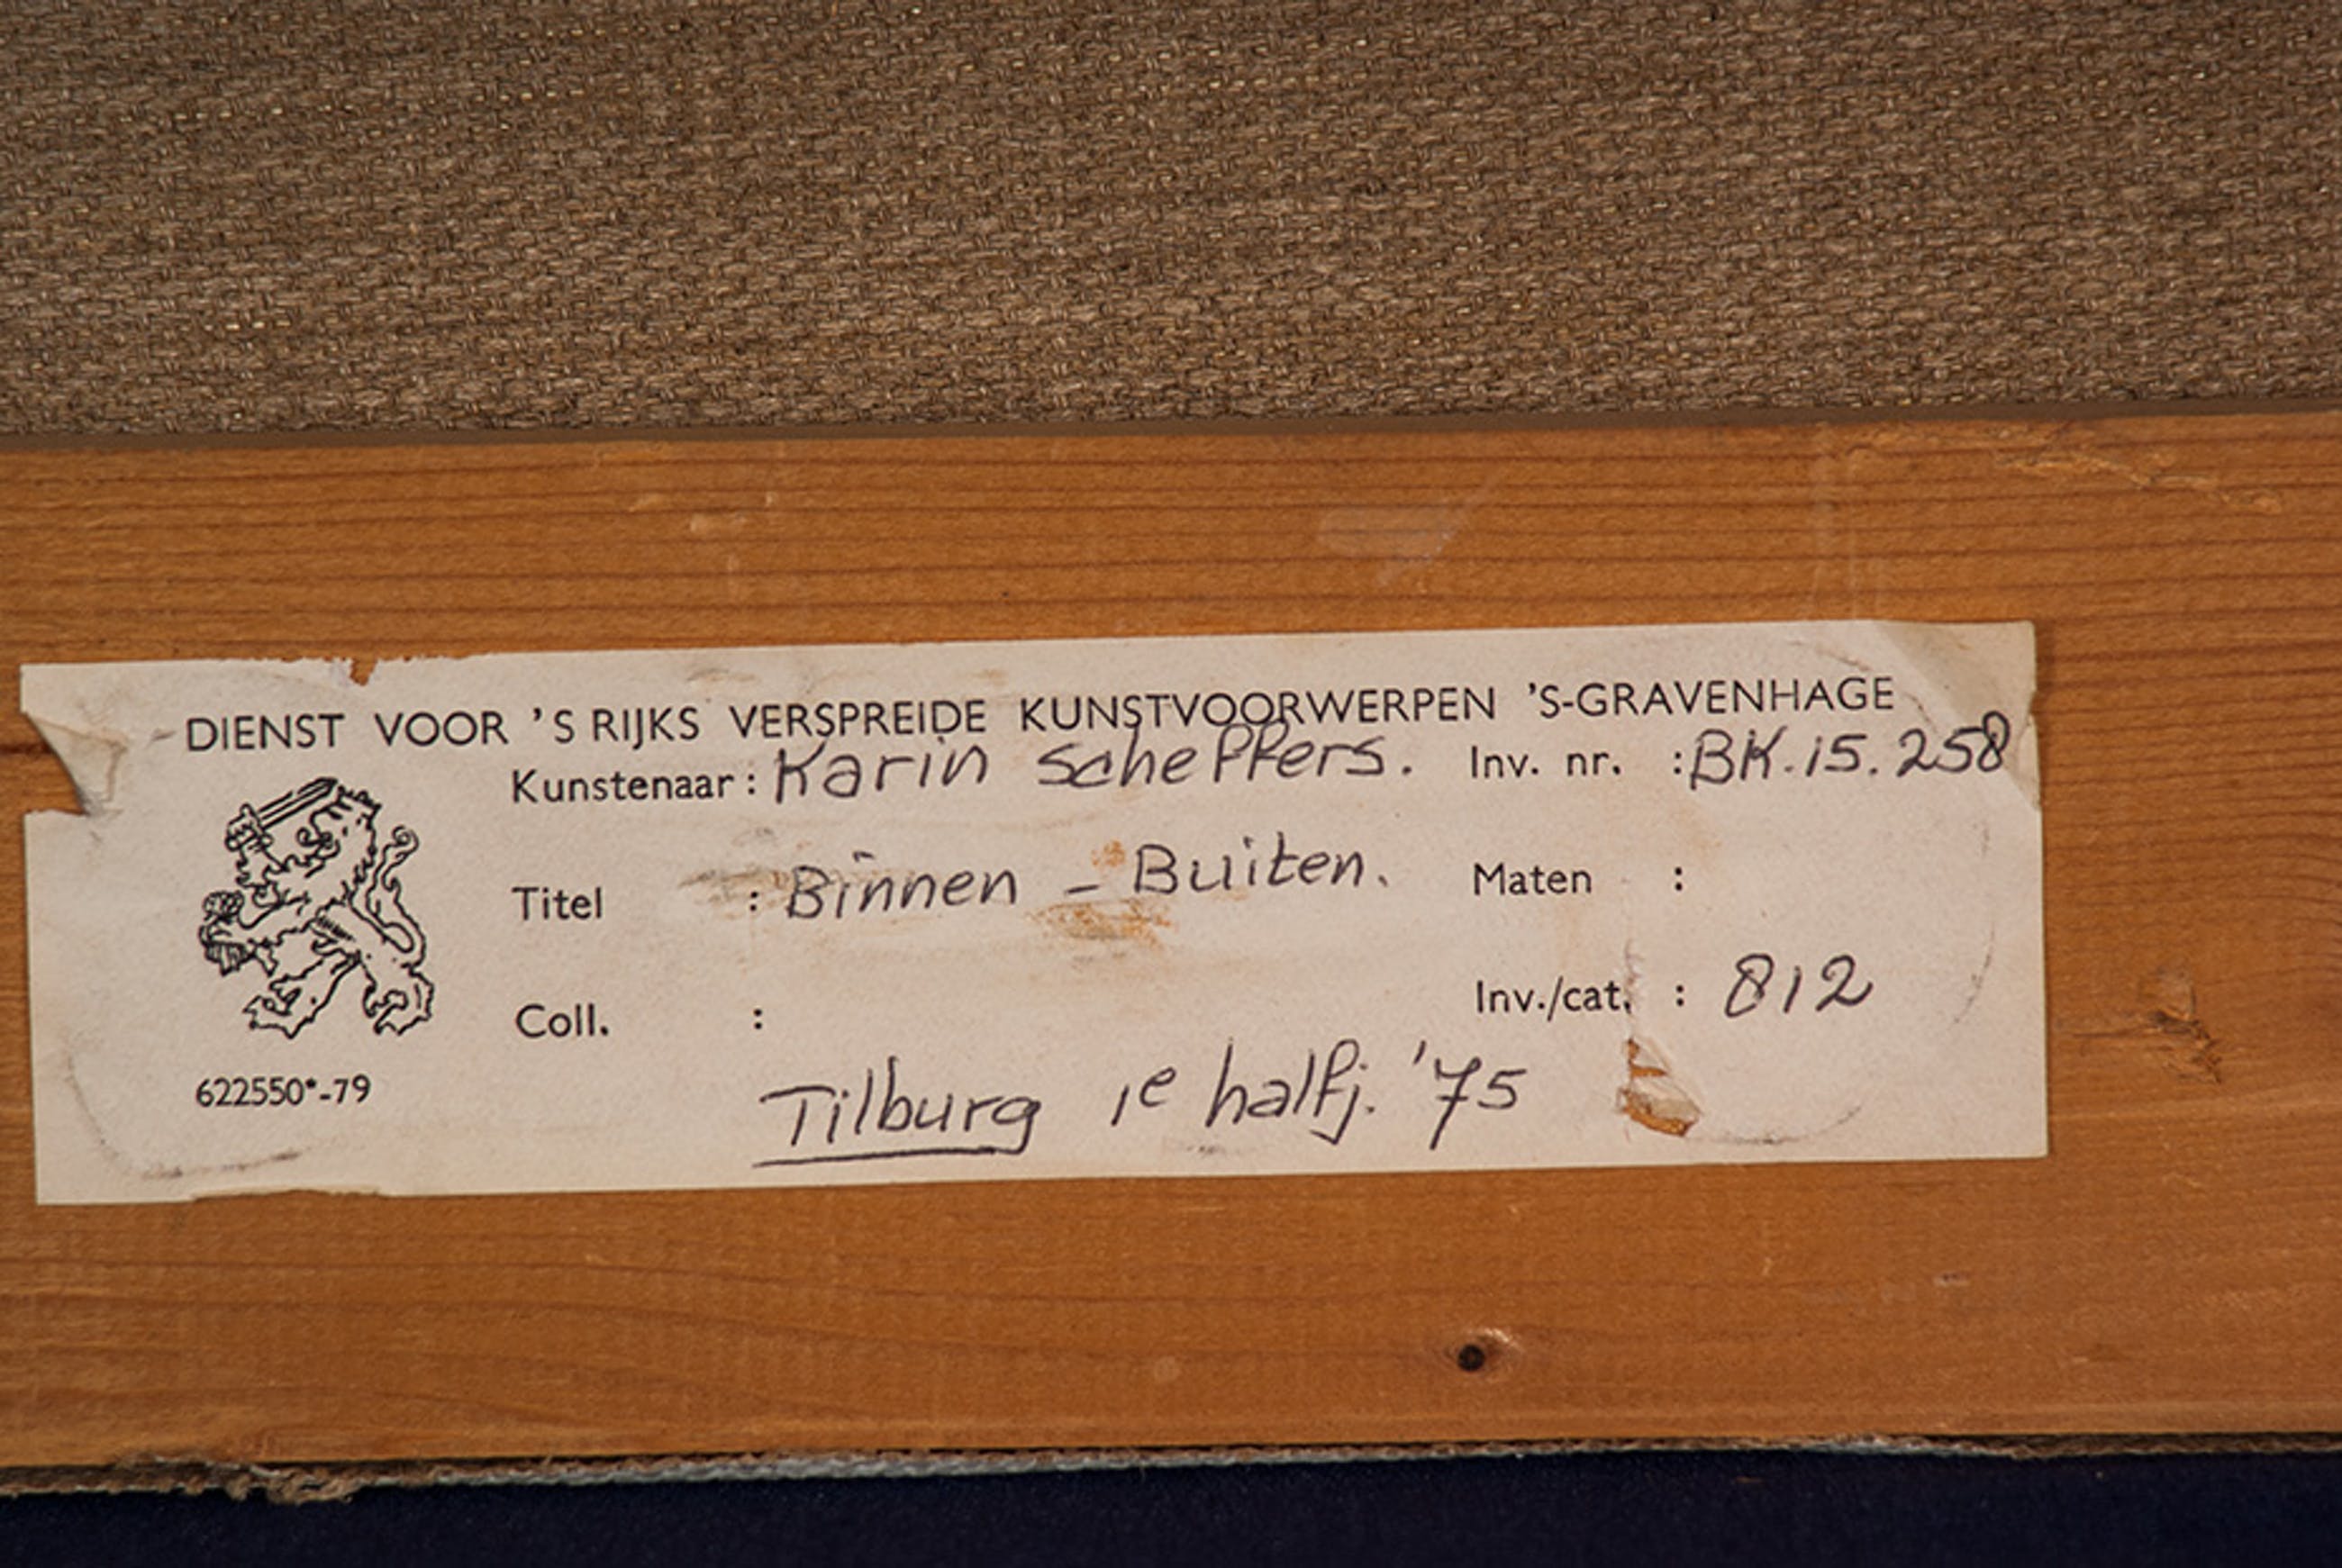 DIENST VOOR 'S RIJKS VERSPREIDE KUNSTVOORWERPEN 'S-GRAVENHAGE
Kunstenaar : Karin Scheffers. Inv. nr. : BK.15.258
Titel : Binnen - Buiten. Maten :
Coll. : Inv./cat. : 812
622550*-79 Tilburg 1e halfj. '75